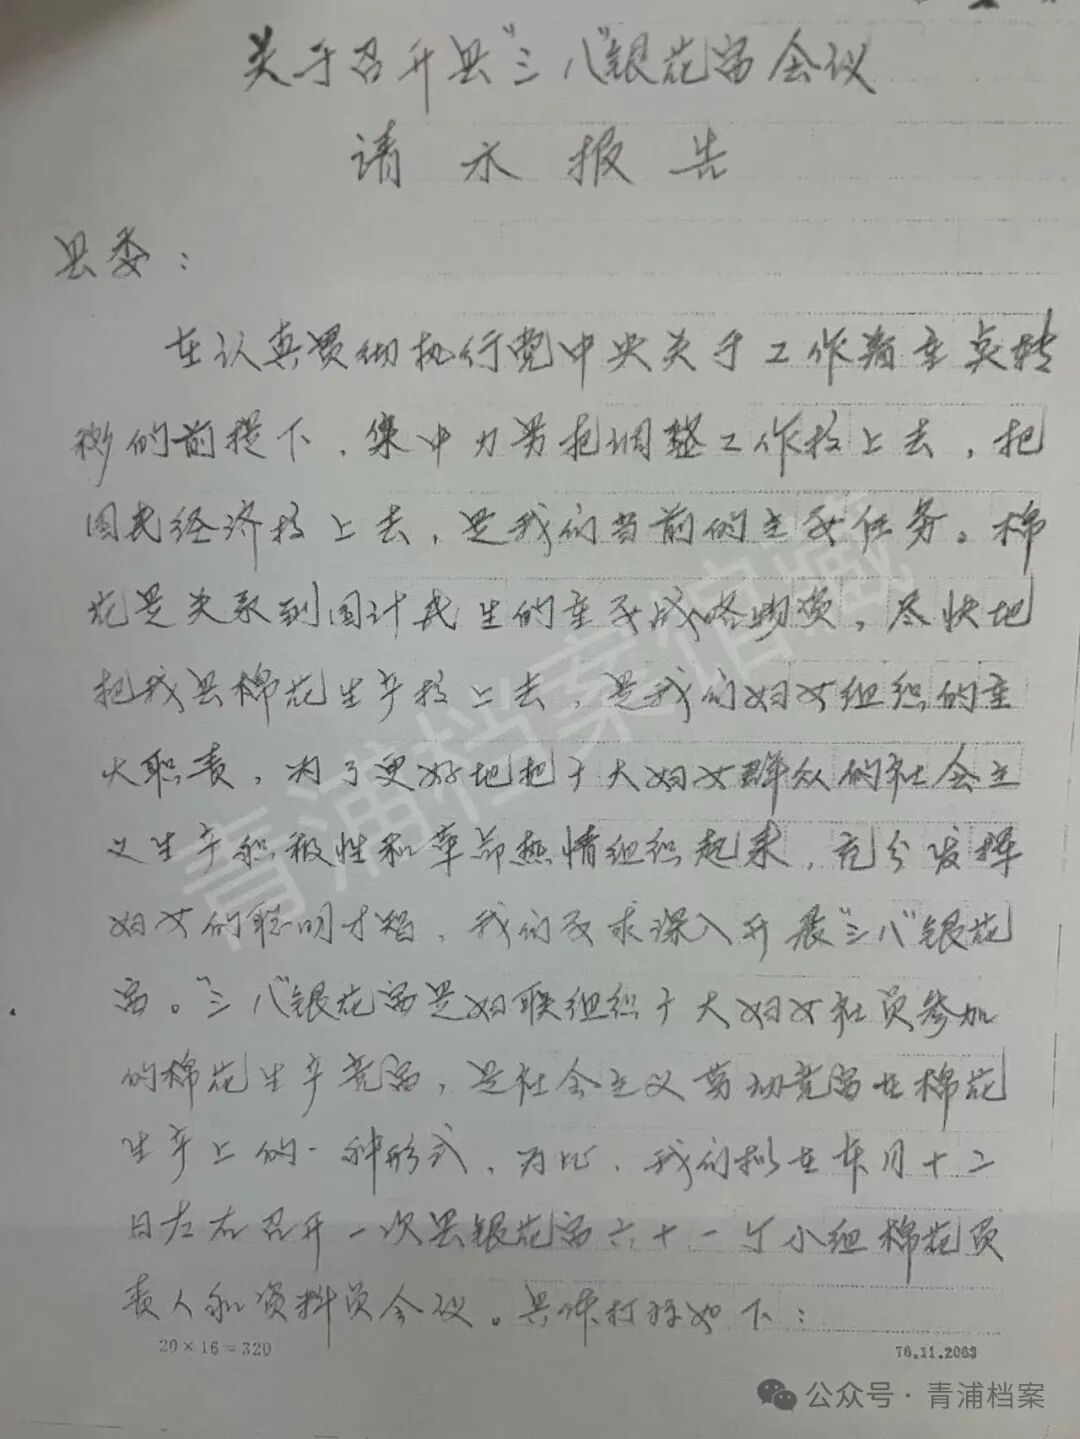 关于召开县"三八"银花赛会议
请示报告
县委：
在认真贯彻执行党中央关于工作着重点转
移的前提下，集中力量把调整工作搞上去，把
国民经济搞上去，是我们当前的主要任务。棉
花是关系到国计民生的重要战略物资，尽快地
把我县棉花生产搞上去，是我们妇女组织的重
大职责，为了更好地把广大妇女群众的社会主
义生产积极性和革命热情组织起来，充分发挥
妇女的聪明才智，我们要求深入开展"三八"银花
赛。"三八"银花赛是妇联组织广大妇女社员参加
的棉花生产竞赛，是社会主义劳动竞赛在棉花
生产上的一种形式，为此，我们拟在本月十二
日左右召开一次县银花赛六十一个小组棉花负
责人和资料员会议。具体打算如下：
20×16=320
76.11.2063
青浦档案馆藏
公众号·青浦档案